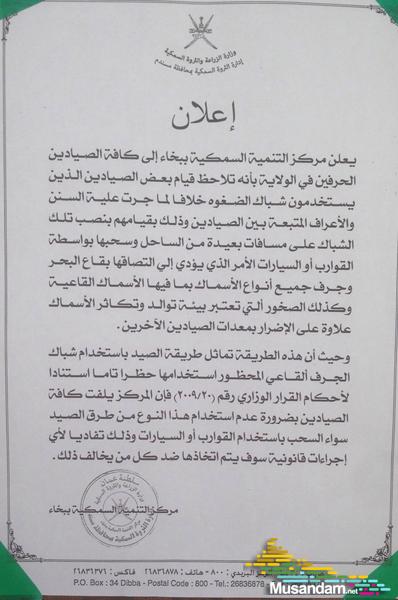 وزارة الزراعة والثروة السمكية
إدارة الثروة السمكية بمحافظة مسندم
إعلان
يعلن مركز التنمية السمكية ببخاء إلى كافة الصيادين
الحرفين في الولاية بأنه تلاحظ قيام بعض الصيادين الذين
يستخدمون شباك الضغوه خلافا لما جرت علية السنن
والأعراف المتبعة بين الصيادين وذلك بقيامهم بنصب تلك
الشباك على مسافات بعيدة من الساحل وسحبها بواسطة
القوارب أو السيارات الأمر الذي يؤدي إلى التصاقها بقاع البحر
وجرف جميع أنواع الأسماك بما فيها الأسماك القاعية
وكذلك الصخور ألتي تعتبر بيئة توالد وتكاثر الأسماك
علاوة على الإضرار بمعدات الصيادين الآخرين.
وحيث أن هذه الطريقة تماثل طريقة الصيد باستخدام شباك
الجرف ألقاعي المحظور استخدامها حظرا تاما استنادا
لأحكام القرار الوزاري رقم (٢٠٠٩/٢٠) فإن المركز يلفت كافة
الصيادين بضرورة عدم استخدام هذا النوع من طرق الصيد
سواء السحب باستخدام القوارب أو السيارات وذلك تفاديا لأي
إجراءات قانونية سوف يتم اتخاذها ضد كل من يخالف ذلك.
سلطنة عمان
مركز التنمية السمكية ببخاء
البريدي: ٨٠٠ - هاتف: ٢٦٨٣٦٨٧٨ فاكس: ٢٦٨٣٦٣٧٦
P.O. Box : 34 Dibba - Postal Code : 800 - Tel.: 26836878
Musandam.net